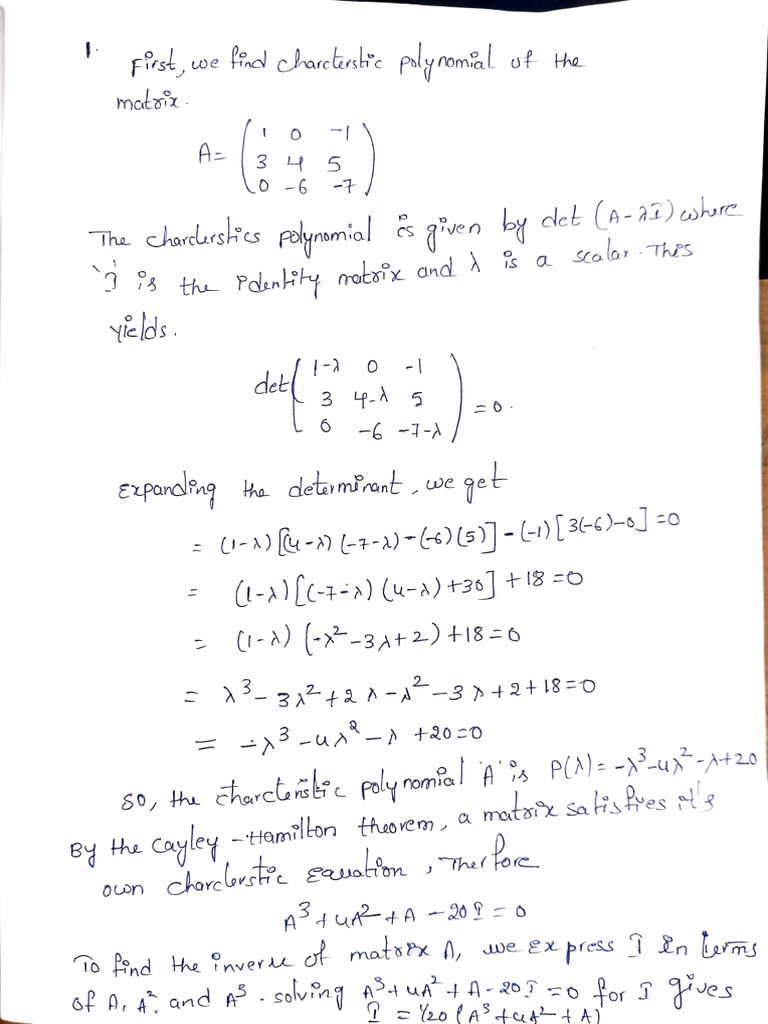 1.
First, we find charcterstic polynomial of the
matrix.
A= ( 1 0 -1
3 4 5
0 -6 -7 )
The charclerstics polynomial is given by det (A-λI) where
'I' is the identity matrix and λ is a scalar. This
yields.
det ( 1-λ 0 -1
3 4-λ 5
0 -6 -7-λ ) = 0.
Expanding the determinant, we get
= (1-λ) [(4-λ) (-7-λ) - (-6) (5)] - (-1) [3(-6)-0] =0
= (1-λ) [(-7-λ) (4-λ) +30] +18 =0
= (1-λ) (-λ² -3λ+2) +18=0
= λ³ - 3λ² +2λ -λ² -3λ +2+18=0
= -λ³ -4λ² -λ +20=0
So, the charcteristic polynomial 'A' is P(λ) = -λ³-4λ²-λ+20
By the Cayley-Hamilton theorem, a matrix satisfies it's
own charclerstic Equation, Therfore
A³ +4A² +A -20I = 0
To find the inverse of matrix A, we express I in terms
of A, A², and A³. solving A³+4A²+A-20I =0 for I gives
I = 1/20 (A³ +4A² +A)